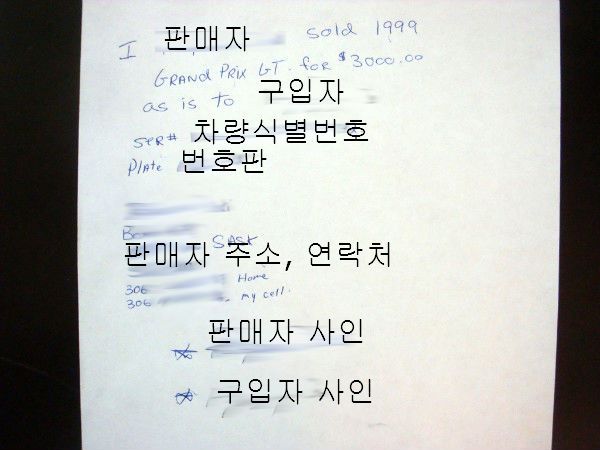 I 판매자 sold 1999
GRAND PRIX GT. for $3000.00
as is to 구입자
SER# 차량식별번호
Plate 번호판
SASK
판매자 주소, 연락처
306 Home
306 my cell.
판매자 사인
구입자 사인